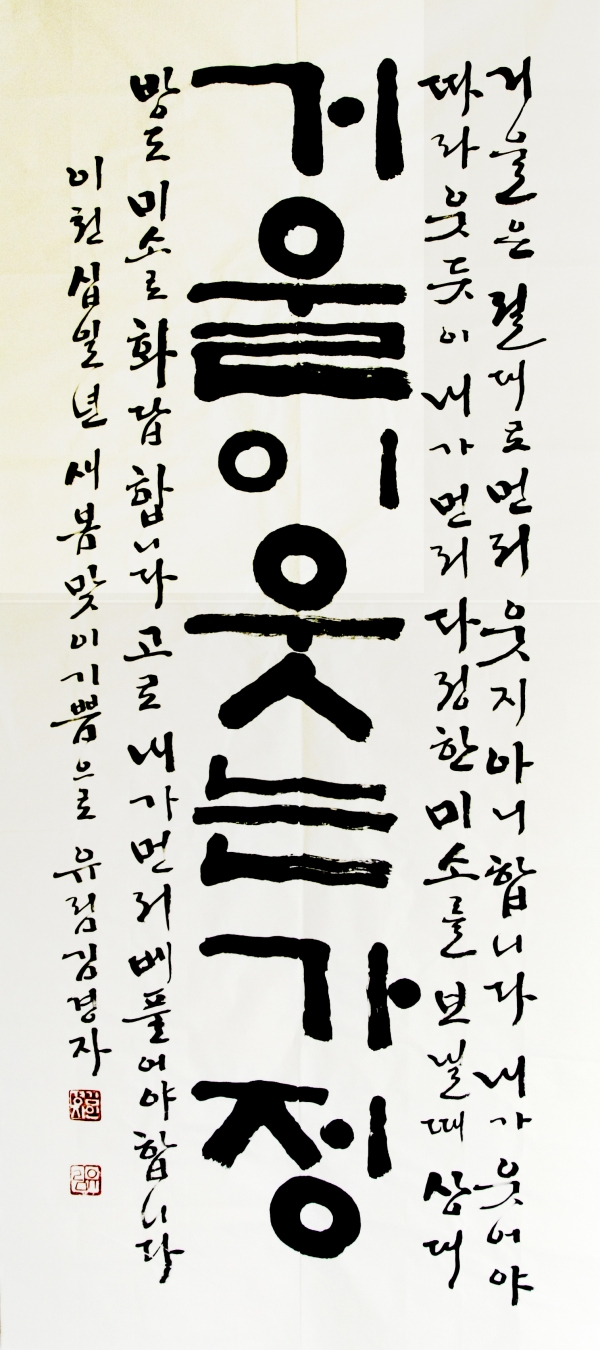 거울이 웃는 가정
거울은 절대로 먼저 웃지 아니합니다 내가 웃어야
따라 웃듯이 내가 먼저 다정한 미소를 보낼 때 상대
방도 미소로 화답합니다 고로 내가 먼저 베풀어야 합니다
이천십일년 새봄맞이 기쁨으로 김경자